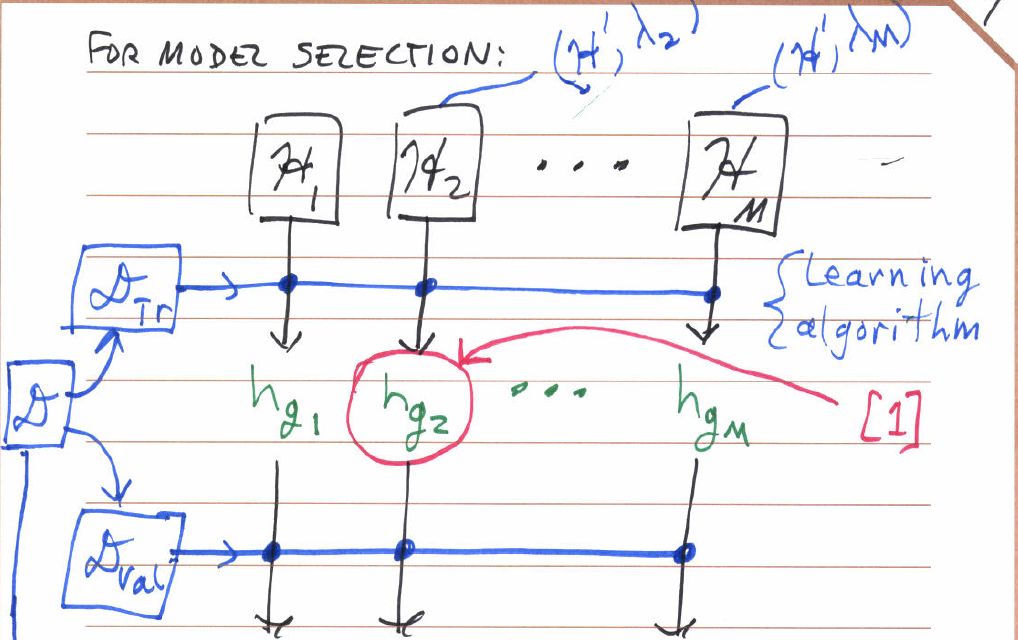 FOR MODEL SELECTION:
(ℋ', λ₂)
(ℋ', λ_M)
ℋ₁
ℋ₂
• • •
ℋ_M
𝒟_Tr
{ Learning
algorithm
𝒟
h_g₁
h_g₂
• • •
h_g_M
[1]
𝒟_val